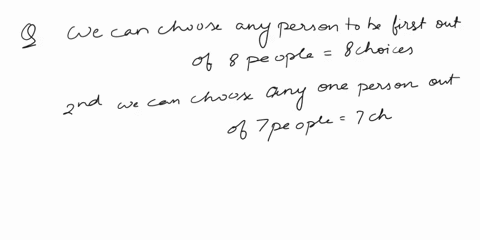 Q we can choose any person to be first out
of 8 people = 8 choices
2nd we can choose any one person out
of 7 people = 7 ch